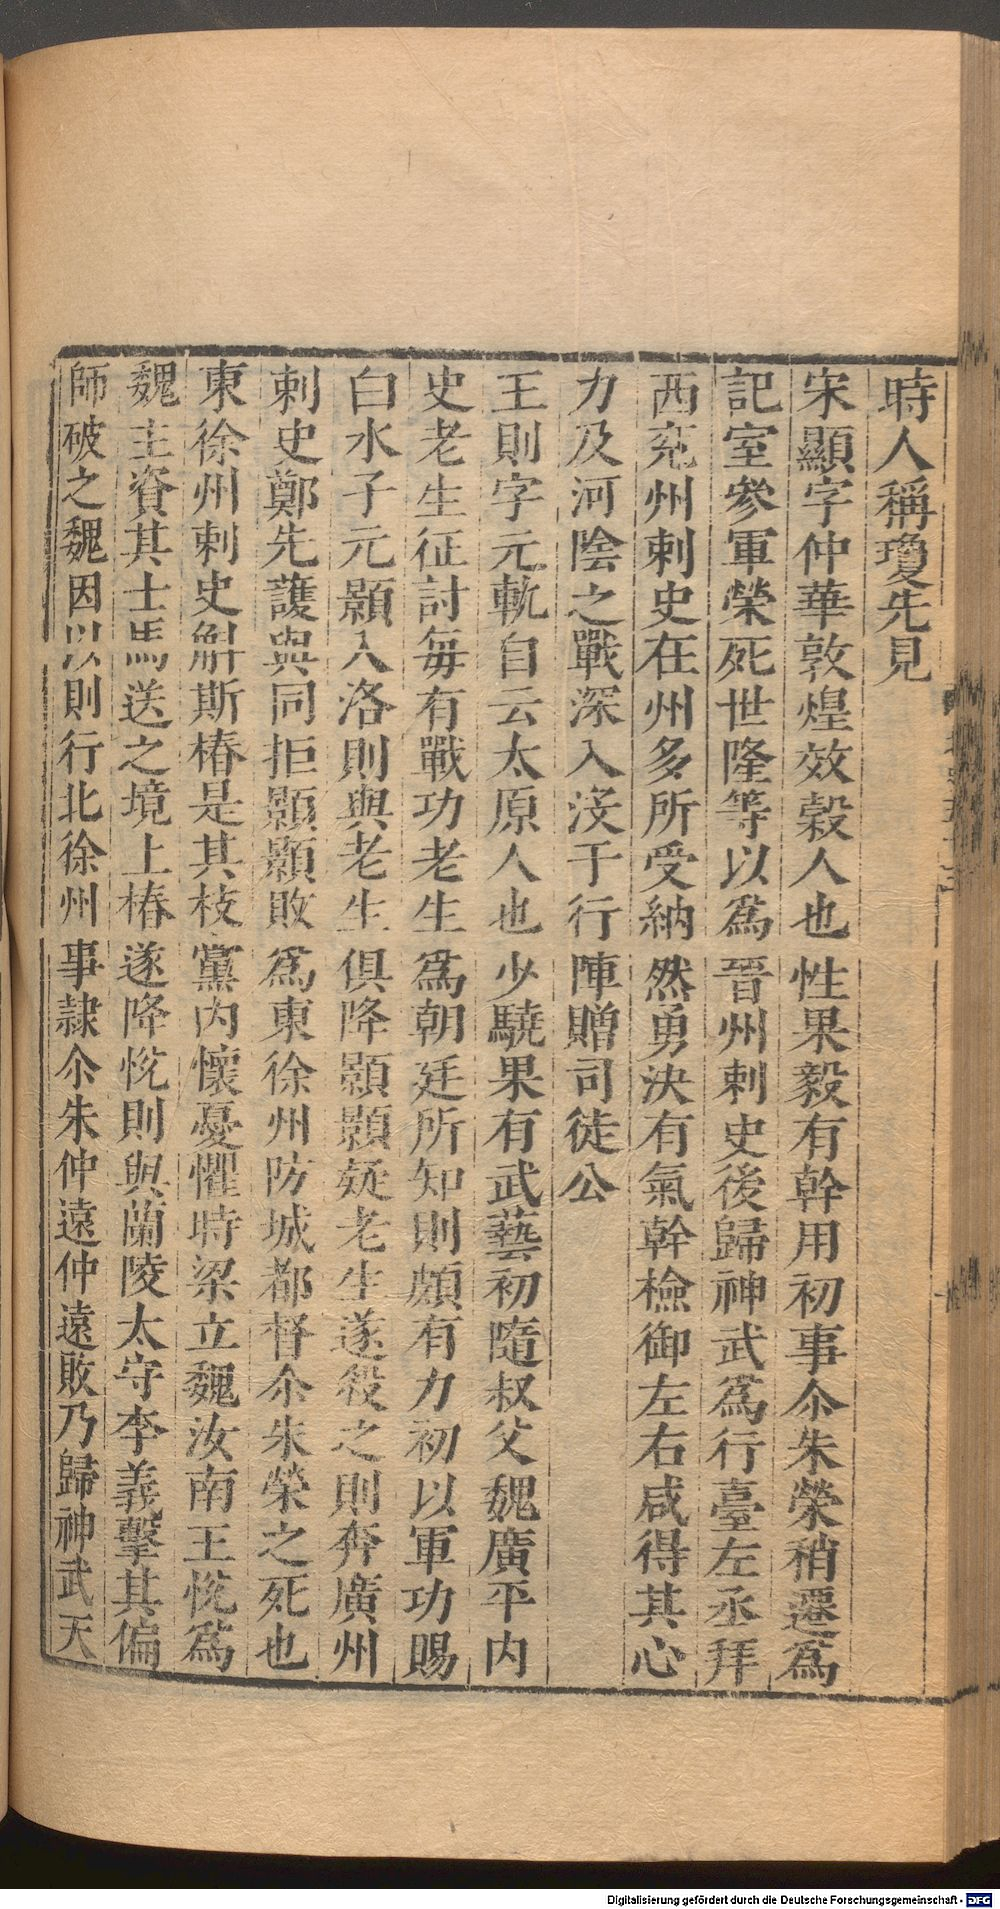 時人稱瓊先見
宋顯字仲華敦煌效穀人也性果毅有幹用初事尒朱榮稍遷爲
記室參軍榮死世隆等以爲晉州刺史後歸神武爲行臺左丞拜
西兖州刺史在州多所受納然勇決有氣幹檢御左右咸得其心
力及河陰之戰深入没于行陣贈司徒公
王則字元軌自云太原人也少驍果有武藝初隨叔父魏廣平内
史老生征討每有戰功老生爲朝廷所知則頗有力初以軍功賜
白水子元顥入洛則與老生俱降顥顥疑老生遂殺之則奔廣州
刺史鄭先護與同拒顥顥敗爲東徐州防城都督尒朱榮之死也
東徐州刺史斛斯椿是其枝黨内懷憂懼時梁立魏汝南王悅爲
魏主資其士馬送之境上椿遂降悅則與蘭陵太守李義擊其偏
師破之魏因以則行北徐州事隷尒朱仲遠仲遠敗乃歸神武天
Digitalisierung gefördert durch die Deutsche Forschungsgemeinschaft - DFG